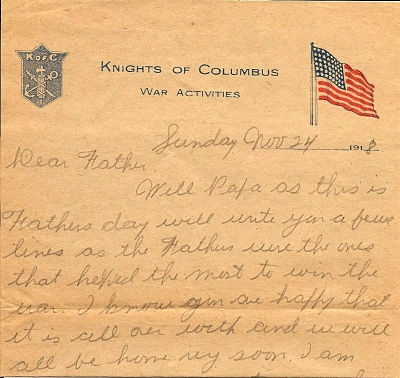 K of C
KNIGHTS OF COLUMBUS
WAR ACTIVITIES
Sunday Nov 24 1918
Dear Father.
Well Papa as this is
Fathers day will write you a few
lines as the Fathers were the ones
that helped the most to win the
war. I know you are happy that
it is all over with and we will
all be home very soon. I am